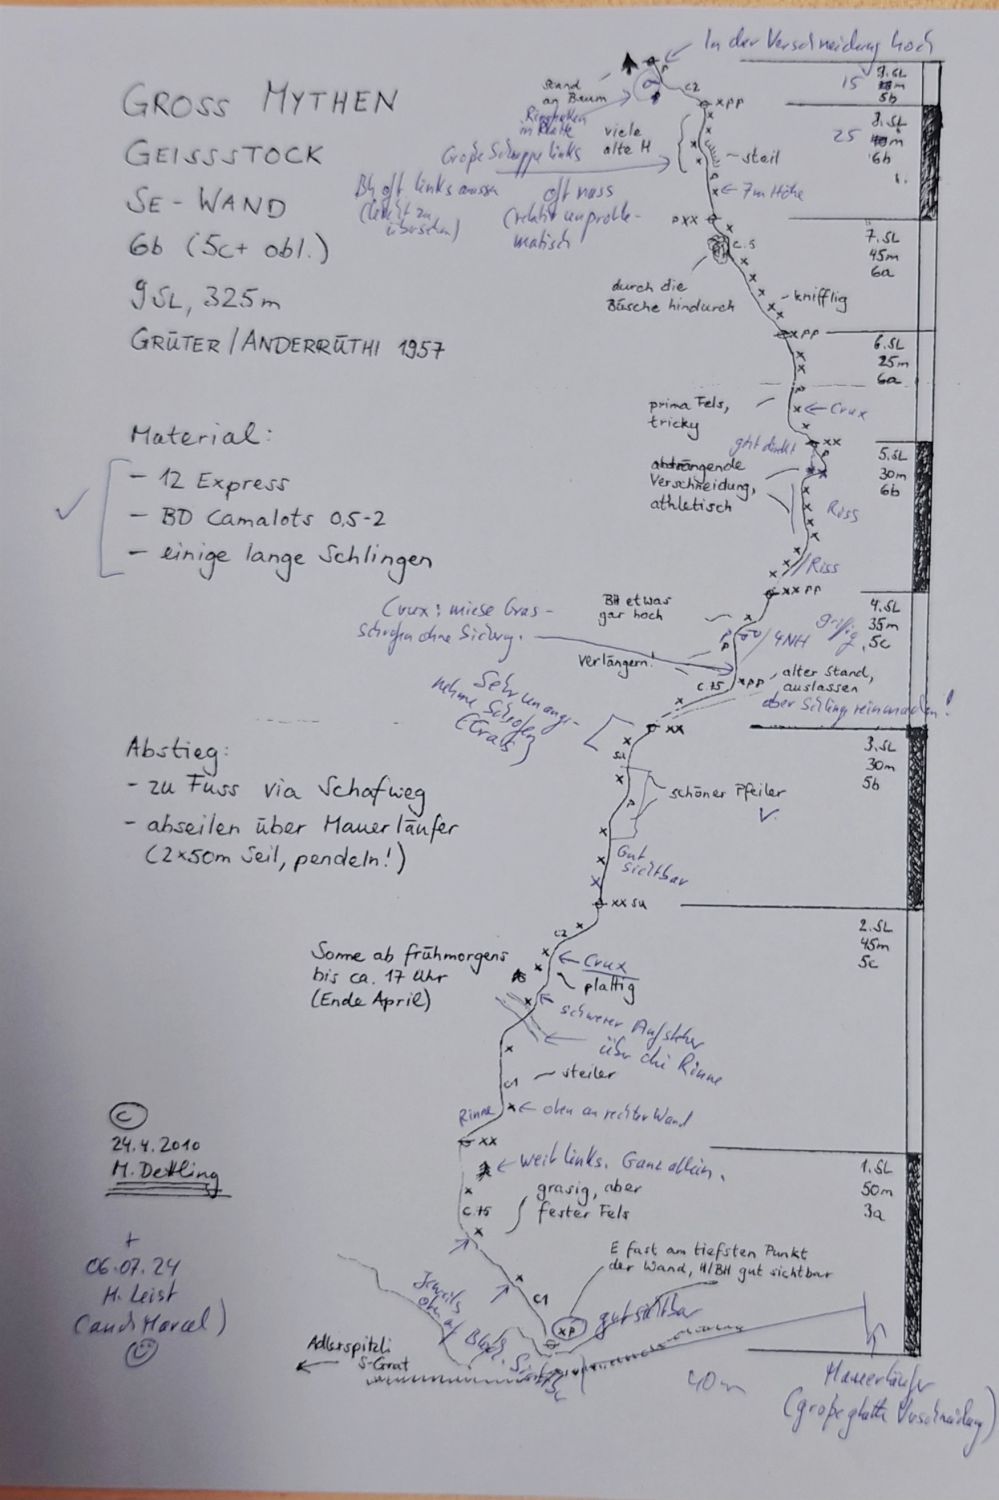 In der Verschneidung hoch
GROSS MYTHEN
GEISSSTOCK
SE-WAND
6b (5c+ obl.)
9SL, 325m
GRÜTER/ANDERRÜTHI 1957
Material:
- 12 Express
- BD Camalots 0,5-2
- einige lange Schlingen
Abstieg:
- zu Fuss via Schafweg
- abseilen über Mauerläufer
(2x50m Seil, pendeln!)
Sonne ab frühmorgens
bis ca. 17 Uhr
(Ende April)
©
24.4.2010
M. Dettling
+
06.07.24
H. Leist
(auch Marcel)
Stand
an Baum
C2
xpp
viele
alte H
Große Schuppe links
steil
7m Höhe
BH oft links aussen
(leicht zu
übersehen)
oft nass
(relativ unproble-
matisch
pxx
C.5
durch die
Büsche hindurch
knifflig
xpp
prima Fels,
tricky
Crux
geht direkt
xx
abdrängende
Verschneidung,
athletisch
Riss
Riss
xxpp
BH etwas
gar hoch
4NH
griffig
Crux: miese Gras-
schrofen ohne Sicherg.
verlängern!
C.75
xpp
alter Stand,
auslassen
aber Schling reinmachen!
Sehr unange-
nehme Schrofen
(Gras)
xx
SU
schöner Pfeiler
Gut
sichtbar
xx SU
C2
Crux
plattig
schwerer Aufsteher
über die Rinne
C1
steiler
Rinne
oben an rechter Wand
xx
weit links. Ganz allein.
C.75
grasig, aber
fester Fels
E fast am tiefsten Punkt
der Wand, H/BH gut sichtbar
C1
Jeweils
xp
gut sichtbar
Adlerspitzli
S-Grat
40m
Mauerläufer
(große glatte Verschneidung)
9.SL
15 m
5b
8.SL
25 m
6b
7.SL
45m
6a
6.SL
25m
6a
5.SL
30m
6b
4.SL
35m
5c
3.SL
30m
5b
2.SL
45m
5c
1.SL
50m
3a